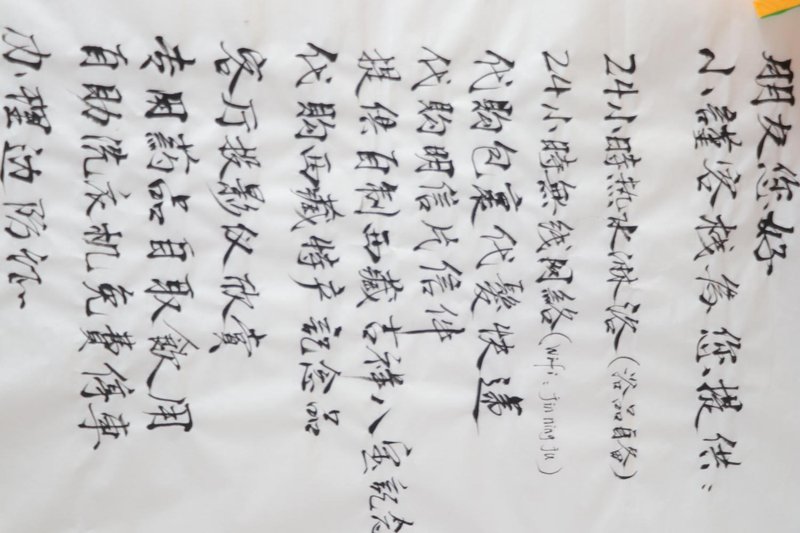 朋友您好
小謹客栈為您提供：
24小時热水淋浴（浴品自备）
24小時無线网絡（wifi：jinningju）
代购包裹代發快遞
代购明信片信件
提供自制西藏吉祥八宝記念
代购西藏特产記念品
客厅投影仪欣賞
常用药品自取飲用
自助洗衣机免費停車
办理边防证